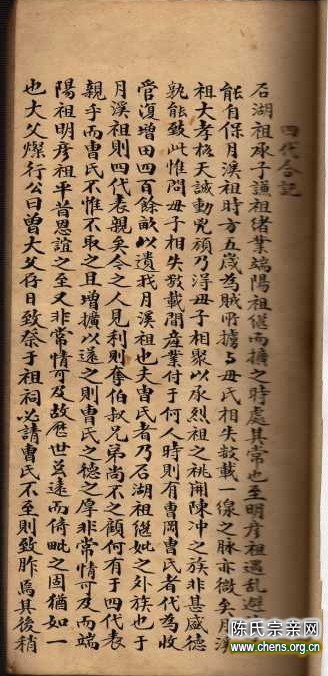 四代合記
石湖祖承子謙祖緒業端陽祖繼而擴之時處其常也至明彦祖遇亂避
能自保月溪祖時方五歲為賊所擄与母氏相失数載一線之脉亦微矣月溪
祖大孝格天誠動兇頑乃得母子相聚以承烈祖之祧開陳冲之族非甚盛德
孰能致此惟問母子相失数載間産業付于何人時則有曹岡曹氏者代為收
管復增田四百餘畝以遺我月溪祖也夫曹氏者乃石湖祖継妣之外族也于
月溪祖則四代表親矣今之人見利則奪伯叔兄弟尚不之顧何有于四代表
親乎而曹氏不惟不取之且增擴以還之則曹氏之德之厚非常情可及而端
陽祖明彦祖平昔恩誼之至又非常情可及故歷世茲遠而倚毗之固猶如一
也大父燦行公曰曾大父存日致祭于祖祠必請曹氏不至則致胙焉其後稍
陈氏宗亲网
www.chens.org.cn